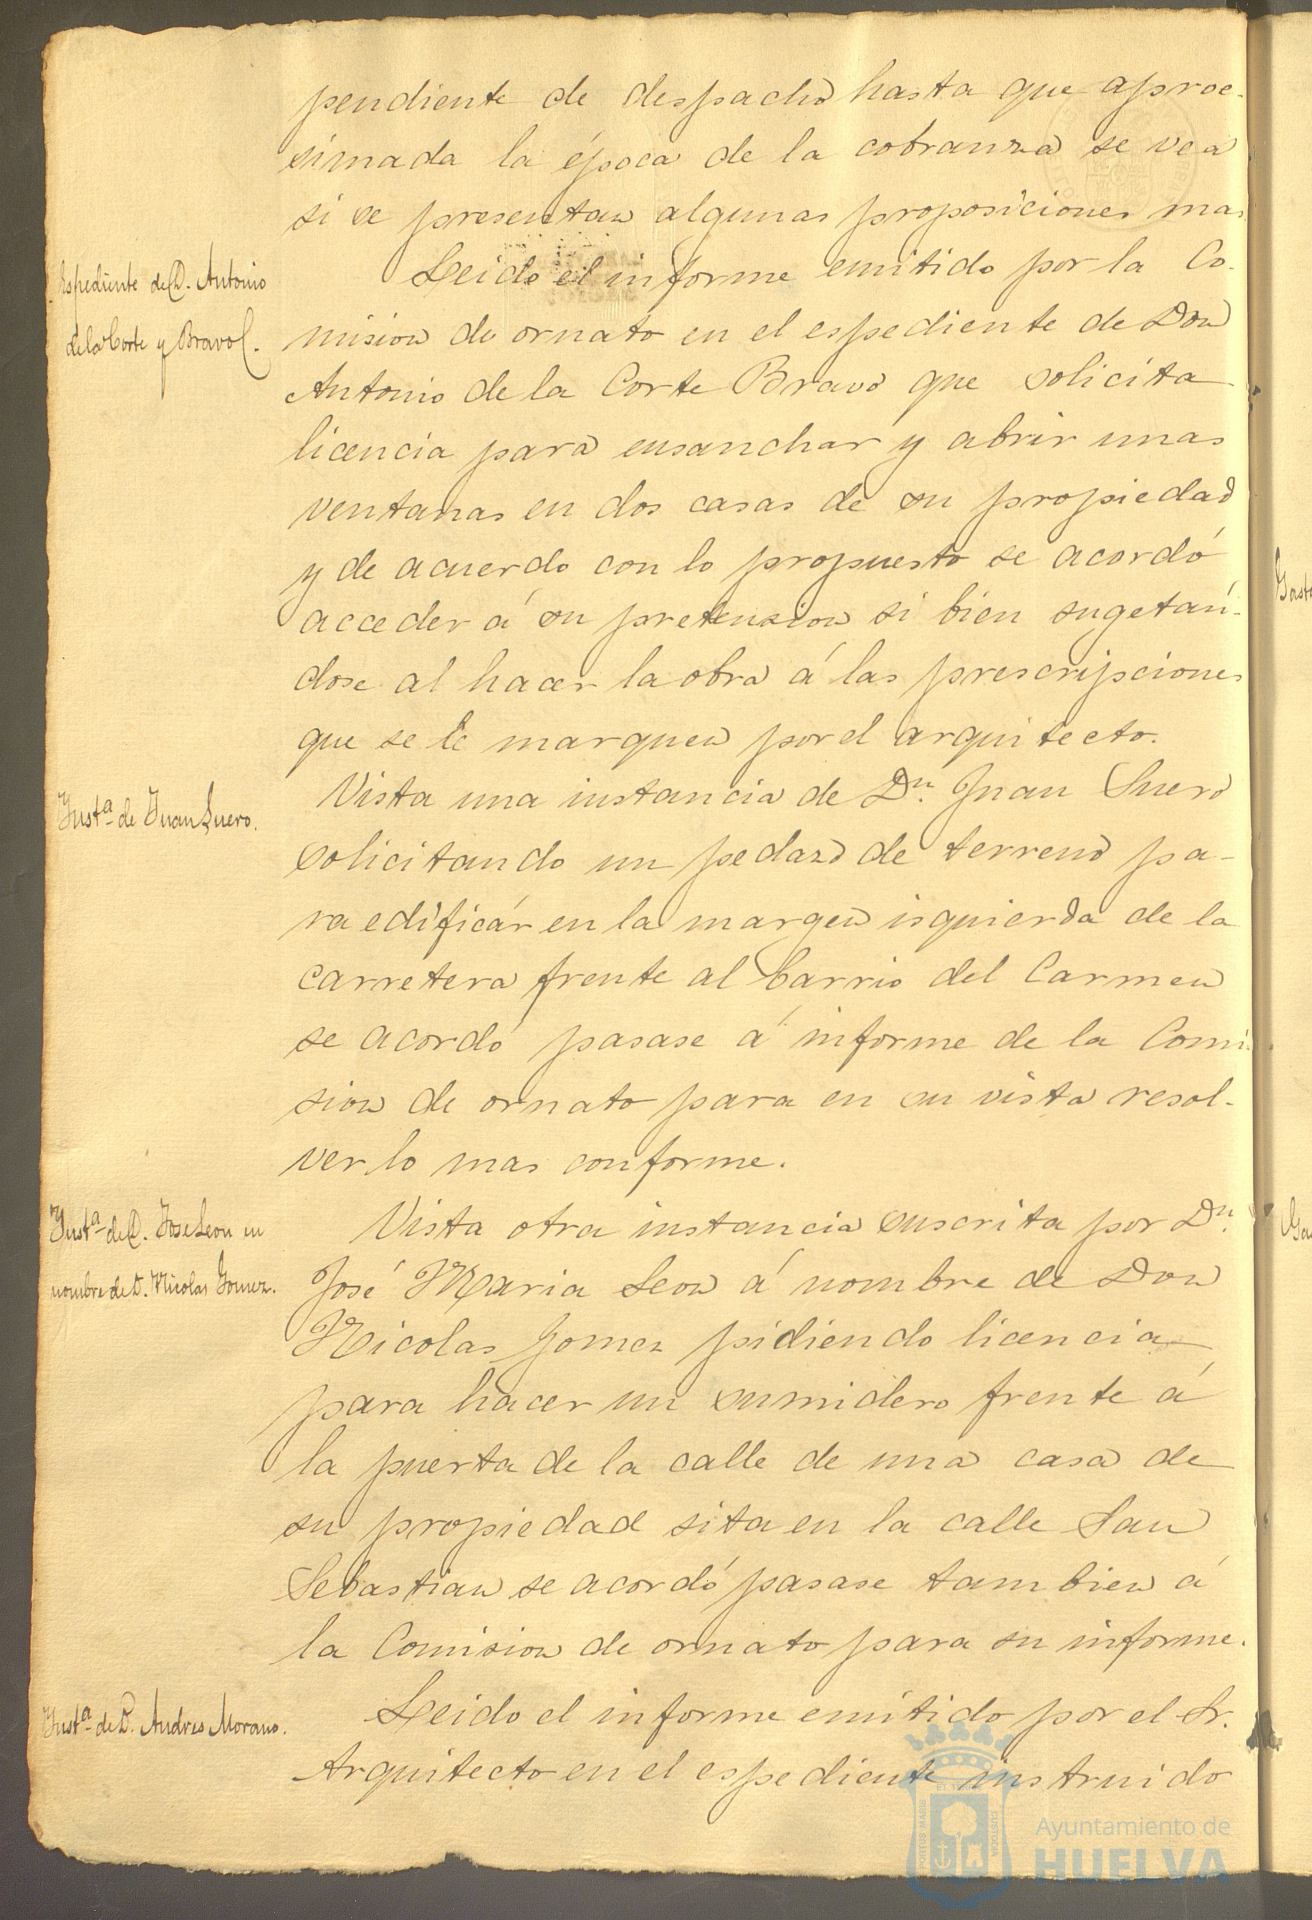 pendiente de despacho hasta que aproc-
simada la época de la cobranza se vea
si se presentan algunas proposiciones mas
Espediente de D. Antonio
de la Corte y Bravo.
Leido el informe emitido por la Co-
mision de ornato en el espediente de Don
Antonio de la Corte Bravo que solicita
licencia para ensanchar y abrir unas
ventanas en dos casas de su propiedad
y de acuerdo con lo propuesto se acordó
acceder á su pretension si bien sugetan-
dose al hacer la obra á las prescripciones
que se le marquen por el arquitecto.
Inst.ª de Juan Suero.
Vista una instancia de D.n Juan Suero
solicitando un pedazo de terreno pa-
ra edificár en la margen isquierda de la
carretera frente al barrio del Carmen
se acordó pasase á informe de la Comi-
sion de ornato para en su vista resol-
ver lo mas conforme.
Inst.ª de D. Jose Leon en
nombre de D. Nicolas Gomez.
Vista otra instancia suscrita por D.n
José Maria Leon á nombre de Don
Nicolas Gomez pidiendo licencia
para hacer un sumidero frente á
la puerta de la calle de una casa de
su propiedad sita en la calle San
Sebastian se acordó pasase tambien á
la Comision de ornato para su informe.
Inst.ª de D. Andres Morano.
Leido el informe emitido por el Sr.
Arquitecto en el espediente instruido
Ayuntamiento de
HUELVA